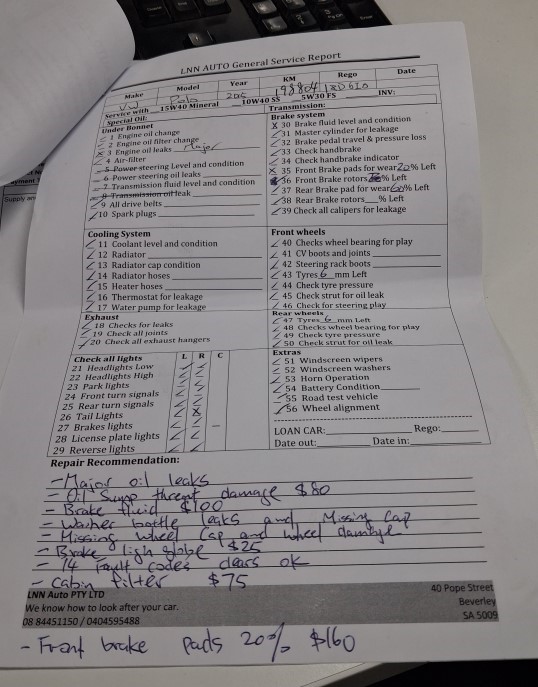 LNN AUTO General Service Report
Make Model Year KM Rego Date
VW Polo 2015 198804
Service with 15W40 Mineral 10W40 SS 5W30 FS INV:
Special Oil: Transmission:
Under Bonnet
1 Engine oil change
2 Engine oil filter change
x 3 Engine oil leaks Major
4 Air-filter
5 Power steering Level and condition
6 Power steering oil leaks
7 Transmission fluid level and condition
8 Transmission oil leak
9 All drive belts
10 Spark plugs
Brake system
x 30 Brake fluid level and condition
31 Master cylinder for leakage
32 Brake pedal travel & pressure loss
33 Check handbrake
34 Check handbrake indicator
x 35 Front Brake pads for wear 20% Left
36 Front Brake rotors % Left
37 Rear Brake pad for wear 60% Left
38 Rear Brake rotors % Left
39 Check all calipers for leakage
Cooling System
11 Coolant level and condition
12 Radiator
13 Radiator cap condition
14 Radiator hoses
15 Heater hoses
16 Thermostat for leakage
17 Water pump for leakage
Exhaust
18 Checks for leaks
19 Check all joints
20 Check all exhaust hangers
Front wheels
40 Checks wheel bearing for play
41 CV boots and joints
42 Steering rack boots
43 Tyres 6 mm Left
44 Check tyre pressure
45 Check strut for oil leak
46 Check for steering play
Rear wheels
47 Tyres 6 mm Left
48 Checks wheel bearing for play
49 Check tyre pressure
50 Check strut for oil leak
Check all lights L R C
21 Headlights Low
22 Headlights High
23 Park lights
24 Front turn signals
25 Rear turn signals
26 Tail Lights x
27 Brakes lights –
28 License plate lights
29 Reverse lights
Extras
51 Windscreen wipers
52 Windscreen washers
53 Horn Operation
54 Battery Condition
55 Road test vehicle
56 Wheel alignment
LOAN CAR: Rego:
Date out: Date in:
Repair Recommendation:
- Major oil leaks
- Oil Sump threat damage $80
- Brake fluid $100
- Washer bottle leaks and Missing Cap
- Missing wheel Cap and wheel damage
- Brake ligh globe $25
- 14 Fault codes clears ok
- Cabin filter $75
LNN Auto PTY LTD
We know how to look after your car.
08 84451150 / 0404595488
40 Pope Street
Beverley
SA 5009
- Front brake pads 20% $160